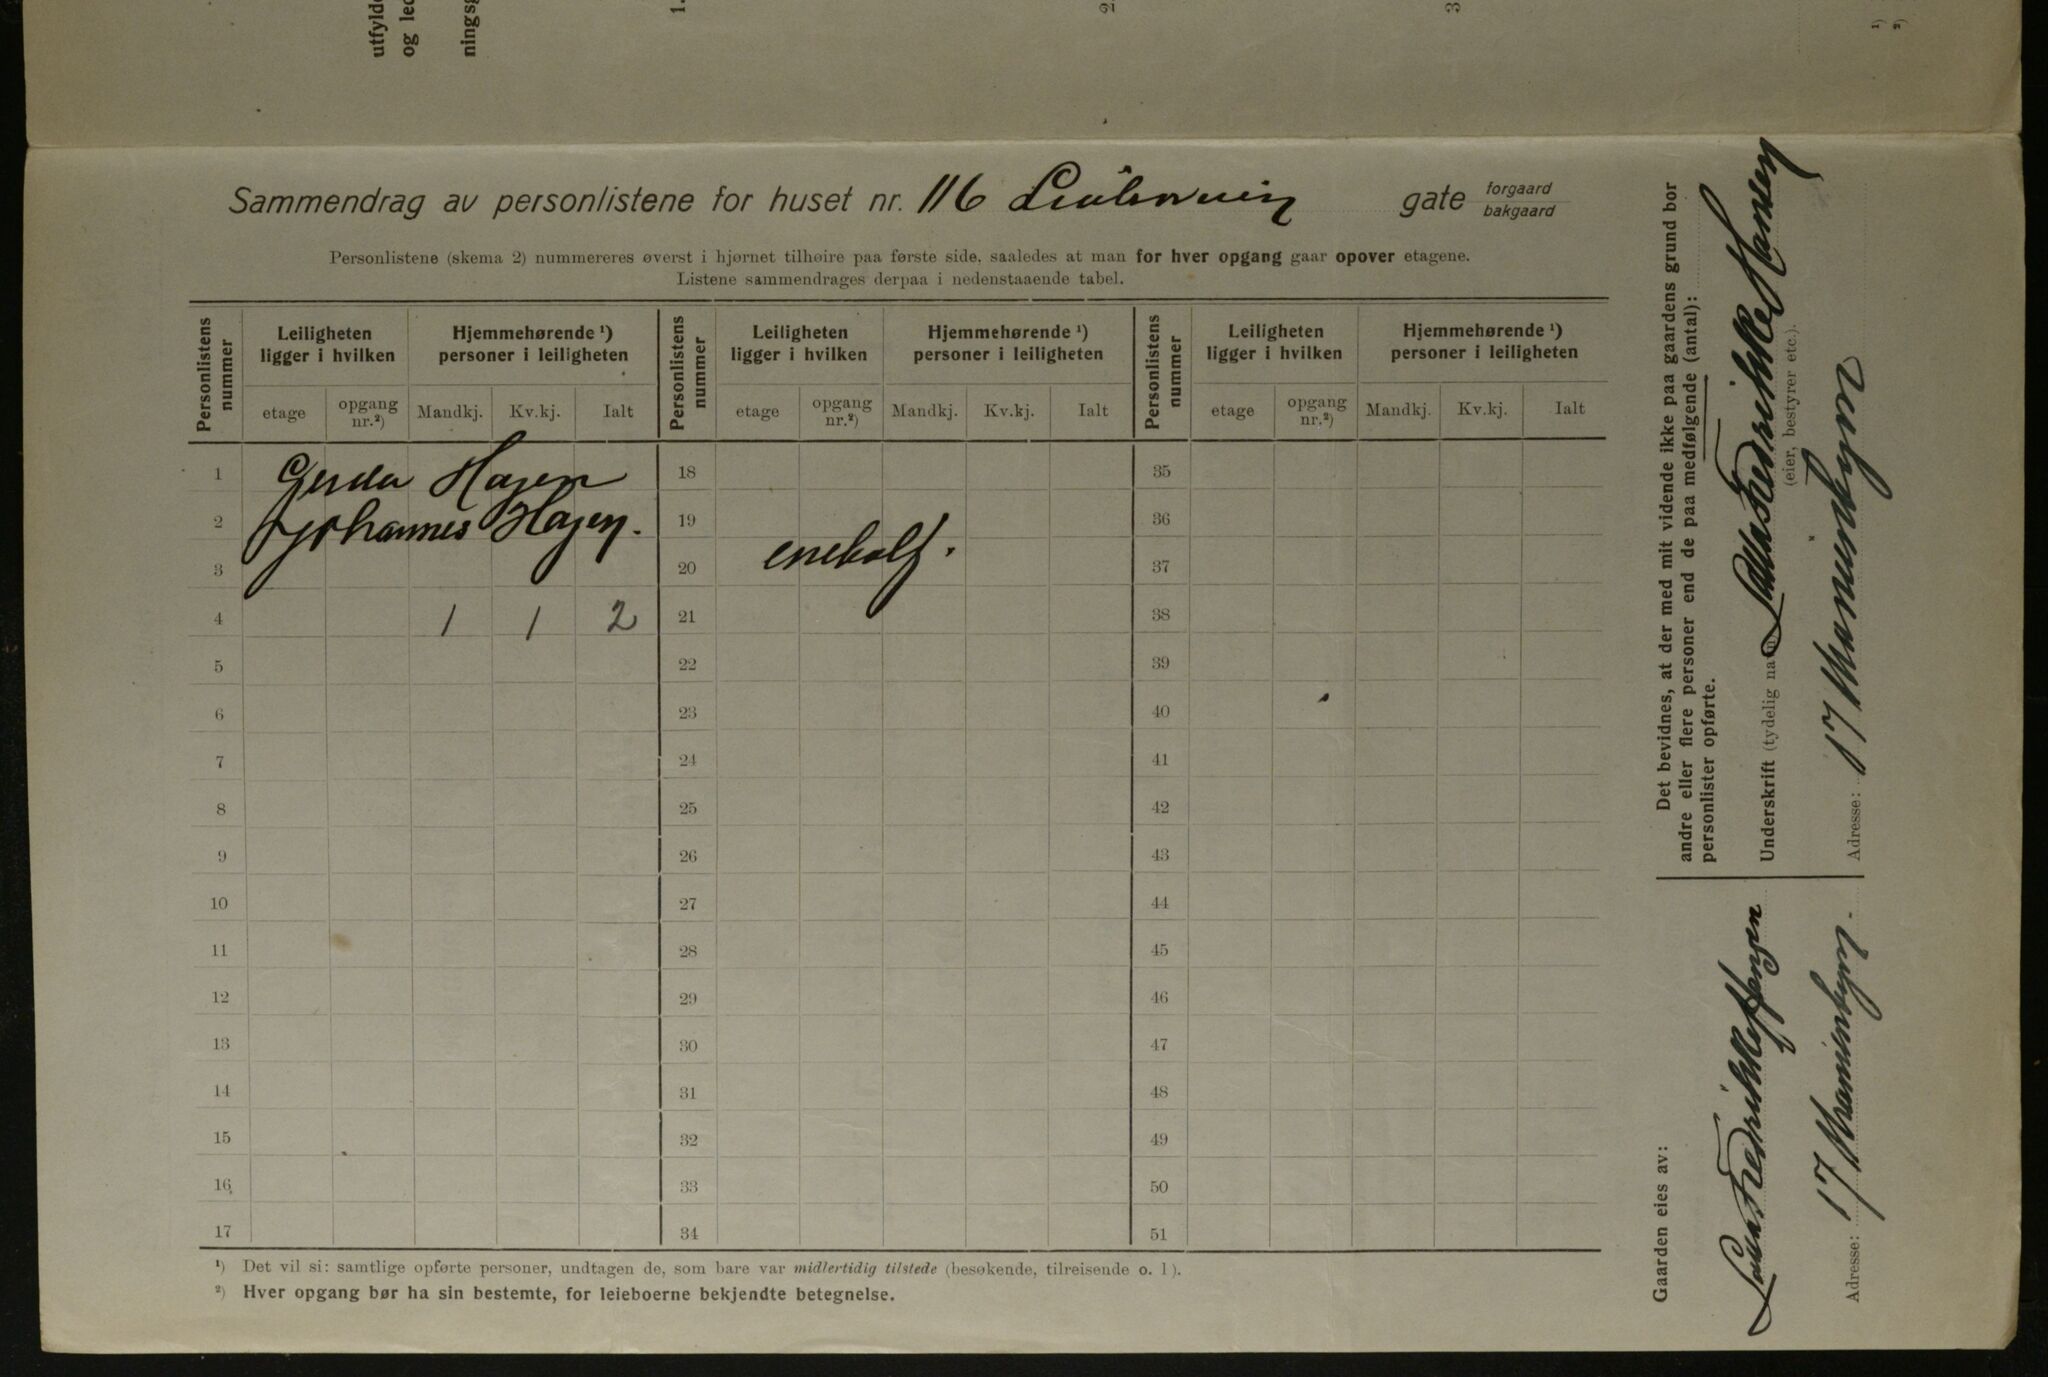 utfylde
og led
ningsg
1.
2
3
¹)
²)
Sammendrag av personlistene for huset nr. 116 gate forgaard bakgaard
Personlistene (skema 2) nummereres øverst i hjørnet tilhøire paa første side, saaledes at man for hver opgang gaar opover etagene.
Listene sammendrages derpaa i nedenstaaende tabel.
Personlistens nummer Leiligheten ligger i hvilken Hjemmehørende ¹) personer i leiligheten Personlistens nummer Leiligheten ligger i hvilken Hjemmehørende ¹) personer i leiligheten Personlistens nummer Leiligheten ligger i hvilken Hjemmehørende ¹) personer i leiligheten
etage opgang nr.²) Mandkj. Kv.kj. Ialt etage opgang nr.²) Mandkj. Kv.kj. Ialt etage opgang nr.²) Mandkj. Kv.kj. Ialt
1 Gerda Hagen 18 35
2 Johannes Hagen. 19 36
3 20 37
4 1 1 2 21 38
5 22 39
6 23 40
7 24 41
8 25 42
9 26 43
10 27 44
11 28 45
12 29 46
13 30 47
14 31 48
15 32 49
16 33 50
17 34 51
¹) Det vil si: samtlige opførte personer, undtagen de, som bare var midlertidig tilstede (besøkende, tilreisende o. l).
²) Hver opgang bør ha sin bestemte, for leieboerne bekjendte betegnelse.
Det bevidnes, at der med mit vidende ikke paa gaardens grund bor
andre eller flere personer end de paa medfølgende (antal):
personlister opførte.
Underskrift (tydelig navn) Fredrikke Hansen
(eier, bestyrer etc.).
Adresse: 17
Gaarden eies av:
Fredrikke Hansen
Adresse: 17